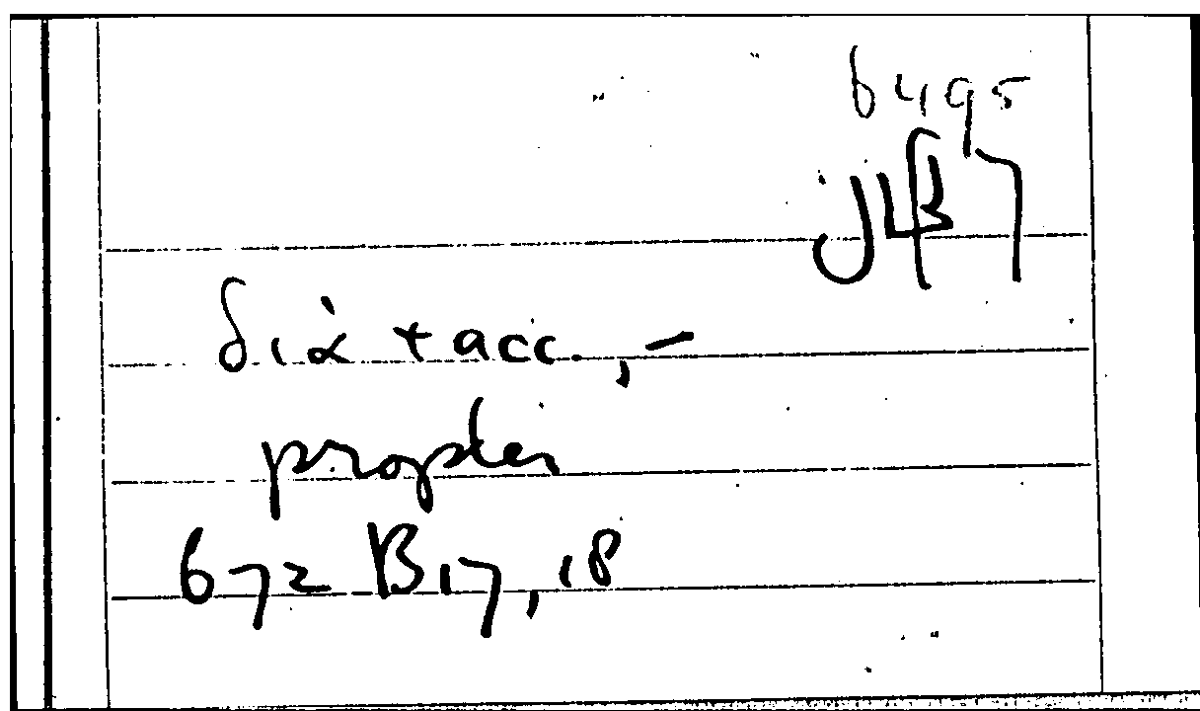 6495
διὰ + acc., –
propter
672 B17, 18